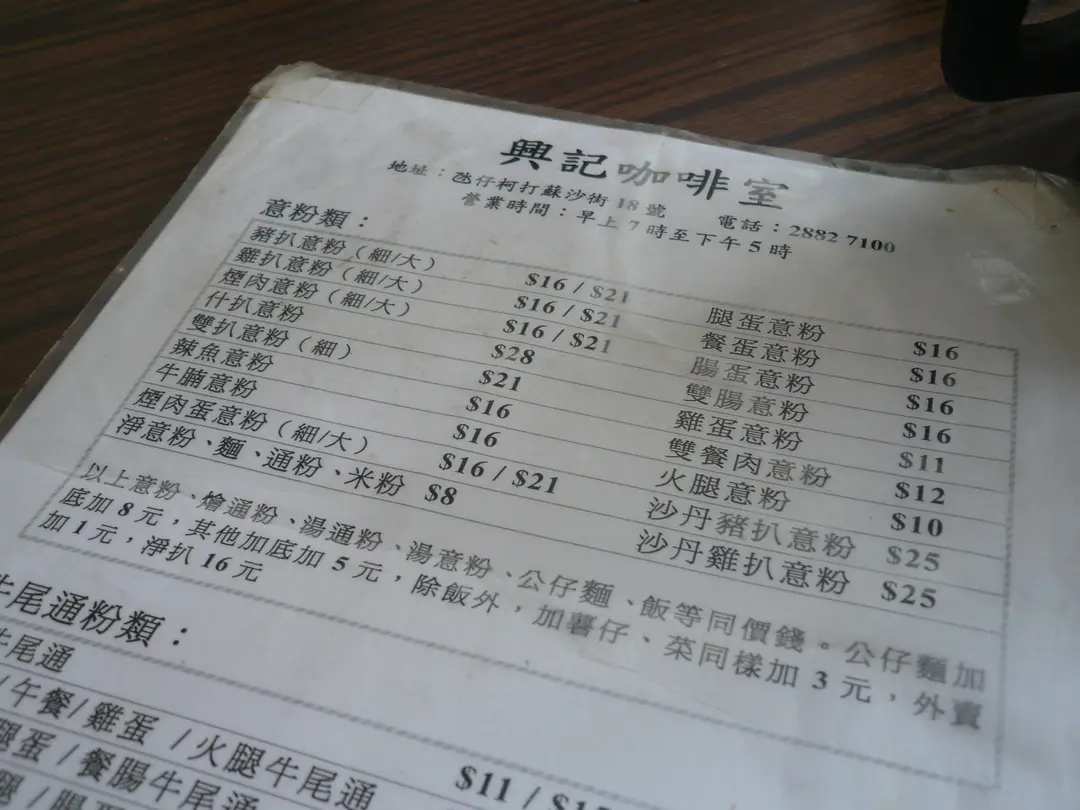 興記咖啡室
地址：氹仔柯打蘇沙街 18 號 電話：2882 7100
營業時間：早上 7 時至下午 5 時
意粉類：
豬扒意粉（細/大） $16 / $21 腿蛋意粉 $16
雞扒意粉（細/大） $16 / $21 餐蛋意粉 $16
煙肉意粉（細/大） $16 / $21 腸蛋意粉 $16
什扒意粉 $28 雙腸意粉 $16
雙扒意粉（細） $21 雞蛋意粉 $11
辣魚意粉 $16 雙餐肉意粉 $12
牛腩意粉 $16 火腿意粉 $10
煙肉蛋意粉（細/大） $16 / $21 沙丹豬扒意粉 $25
淨意粉、麵、通粉、米粉 $8 沙丹雞扒意粉 $25
以上意粉、燴通粉、湯通粉、湯意粉、公仔麵、飯等同價錢。公仔麵加
底加 8 元，其他加底加 5 元，除飯外，加薯仔、菜同樣加 3 元，外賣
加 1 元，淨扒 16 元
牛尾通粉類：
牛尾通
/午餐/雞蛋 /火腿牛尾通 $11 /
腿蛋 / 餐腸牛尾通